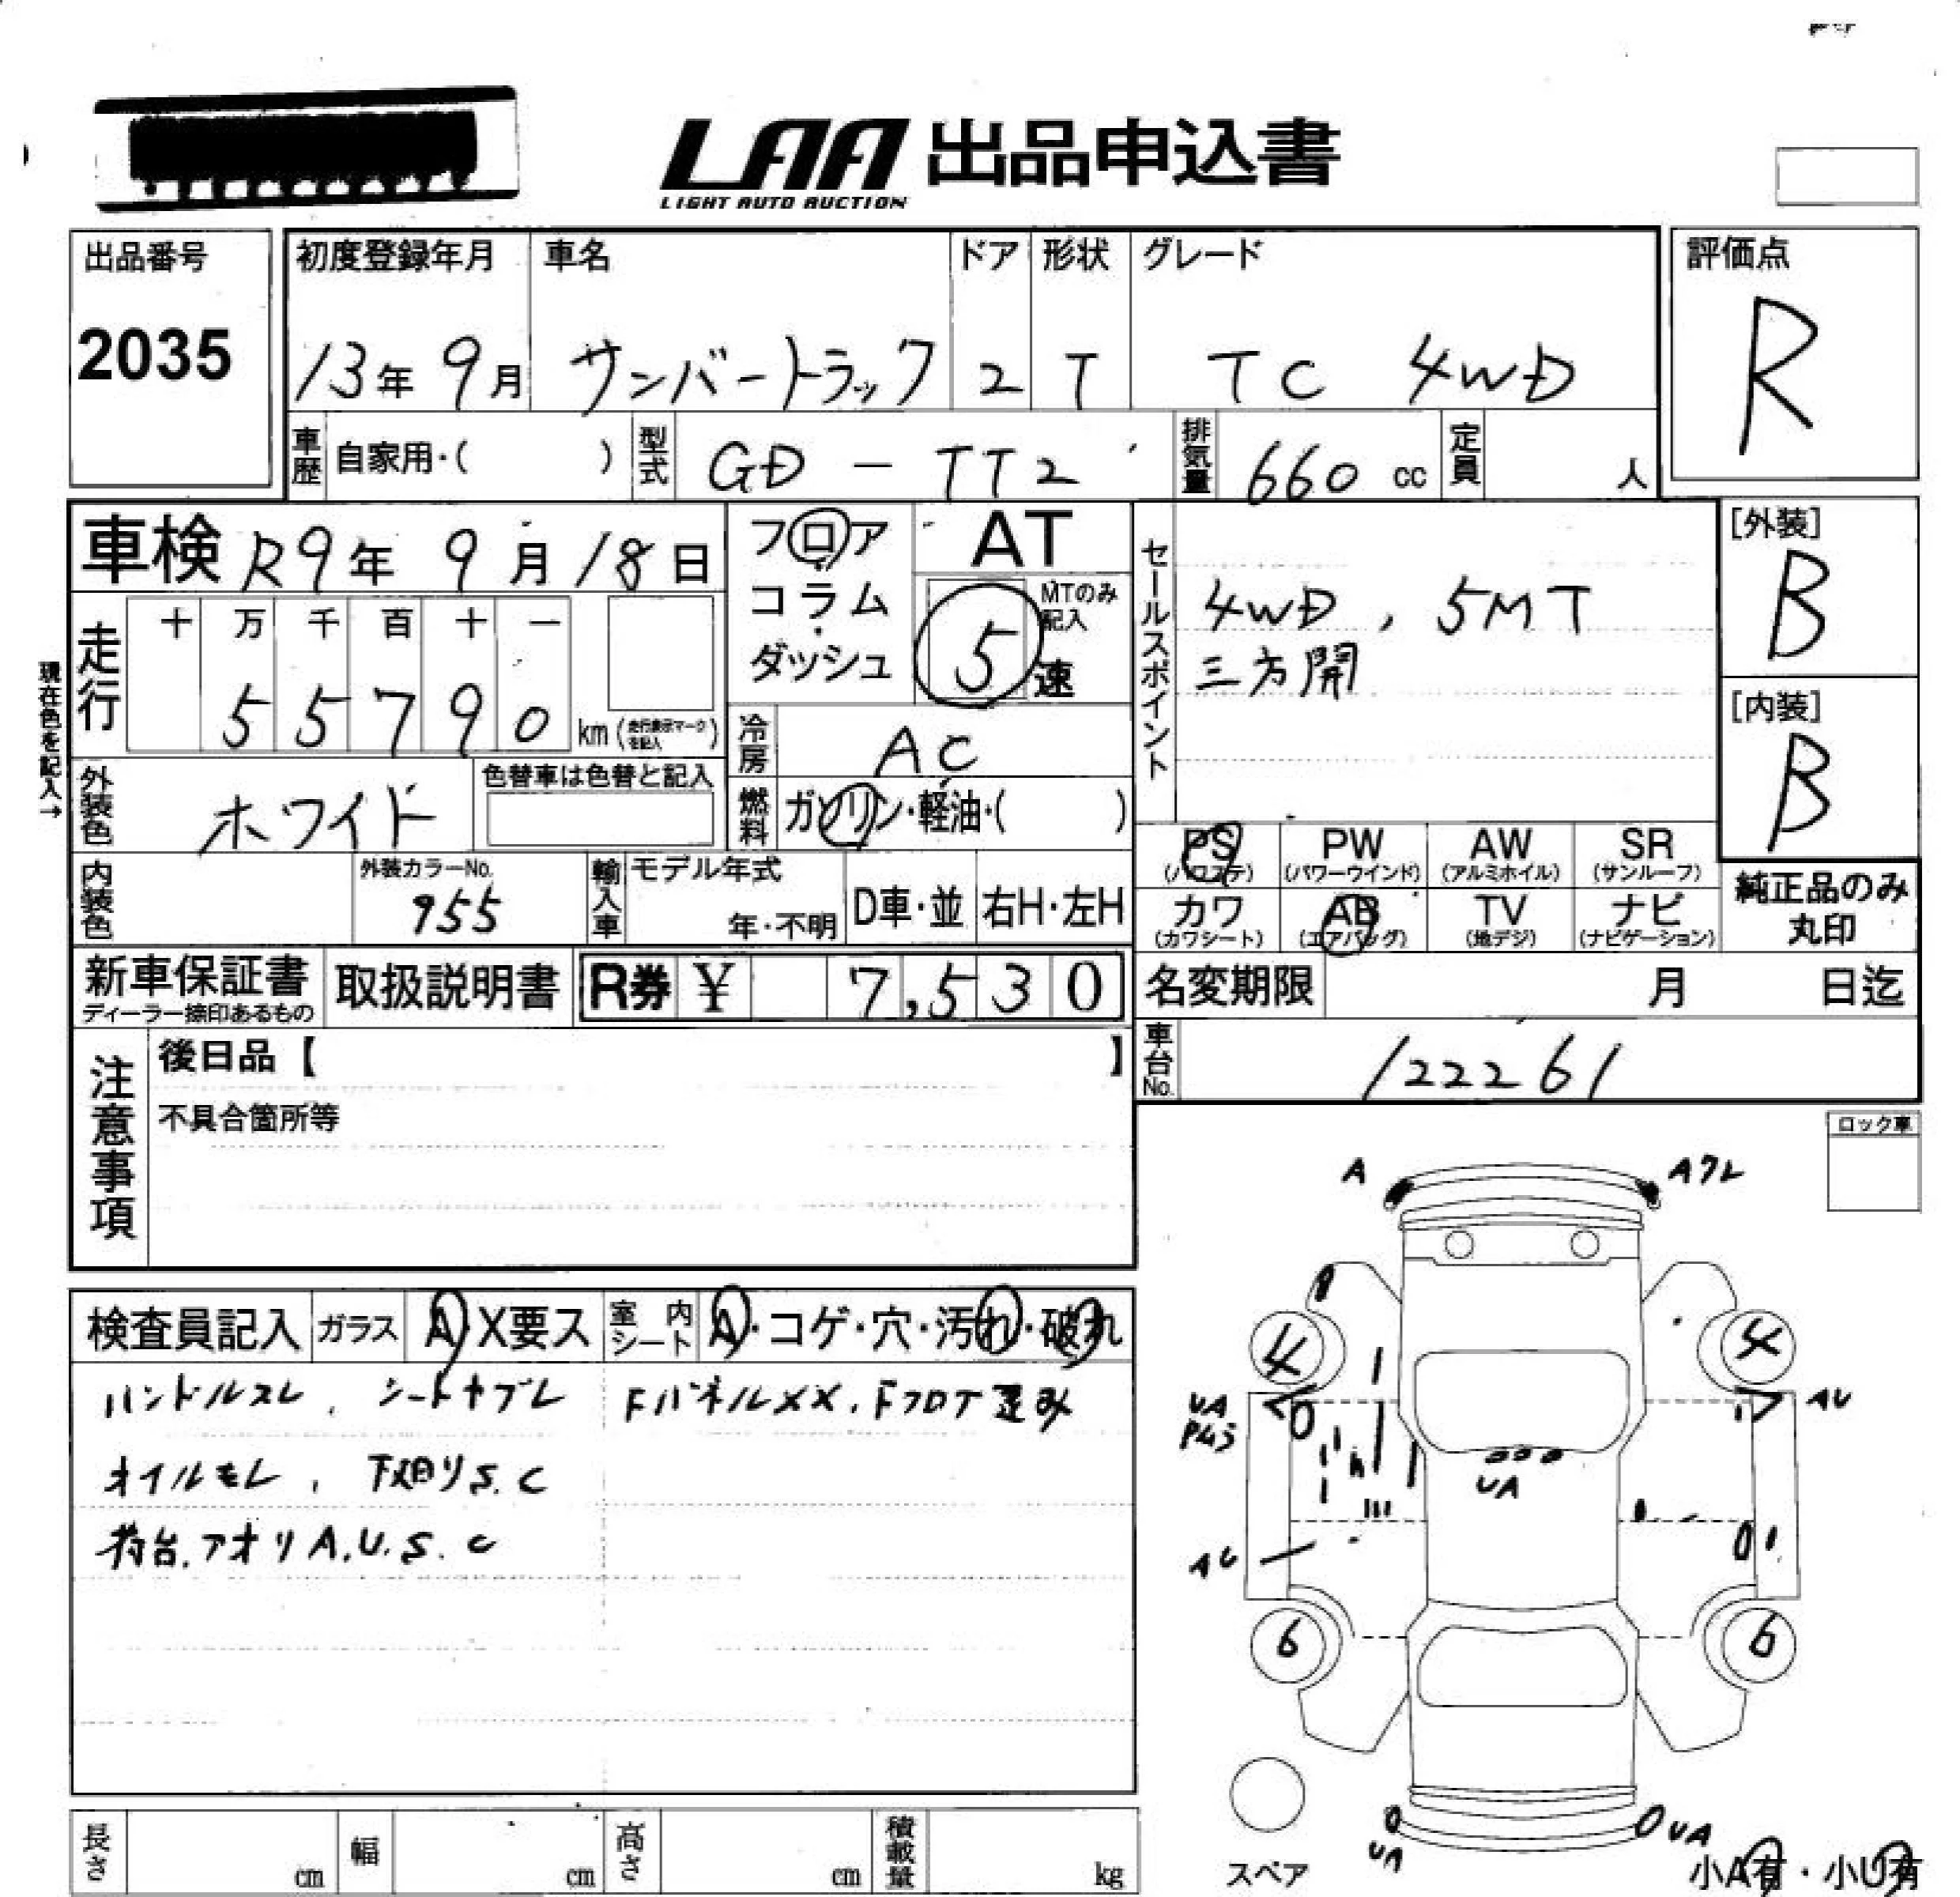 LAA 出品申込書
LIGHT AUTO AUCTION
出品番号
2035
初度登録年月
13年 9月
車名
サンバートラック
ドア
2
形状
T
グレード
TC 4WD
評価点
R
車歴 自家用・( )
型式 GD - TT2
排気量 660 cc
定員 人
車検 R9年 9月 18日
フロア・コラム・ダッシュ
AT
MTのみ記入
5 速
セールスポイント
4WD, 5MT
三方開
[外装]
B
[内装]
B
現在色を記入→
走行
十 万 千 百 十 一
5 5 7 9 0 km (走行表示マークを記入)
冷房 AC
外装色 ホワイト
色替車は色替と記入
燃料 ガソリン・軽油・( )
PS (パワステ)
PW (パワーウインド)
AW (アルミホイル)
SR (サンルーフ)
カワ (カワシート)
AB (エアバッグ)
TV (地デジ)
ナビ (ナビゲーション)
純正品のみ丸印
内装色
外装カラーNo.
955
輸入車
モデル年式
年・不明
D車・並
右H・左H
新車保証書
ディーラー捺印あるもの
取扱説明書
R券 ¥ 7,530
名変期限 月 日迄
車台No. 122261
注意事項
後日品【 】
不具合箇所等
ロック車
検査員記入
ガラス A・X要ス
室内シート A・コゲ・穴・汚れ・破れ
ハンドルスレ, シートヤブレ
FパネルXX, Fフロア歪み
オイルモレ, 下廻りS.C
荷台,アオリA.U.S.C
A
Aワレ
4
4
UA
AU
UA
AU
6
6
UA
UA
スペア
小A有・小U有
長さ cm
幅 cm
高さ cm
積載量 kg